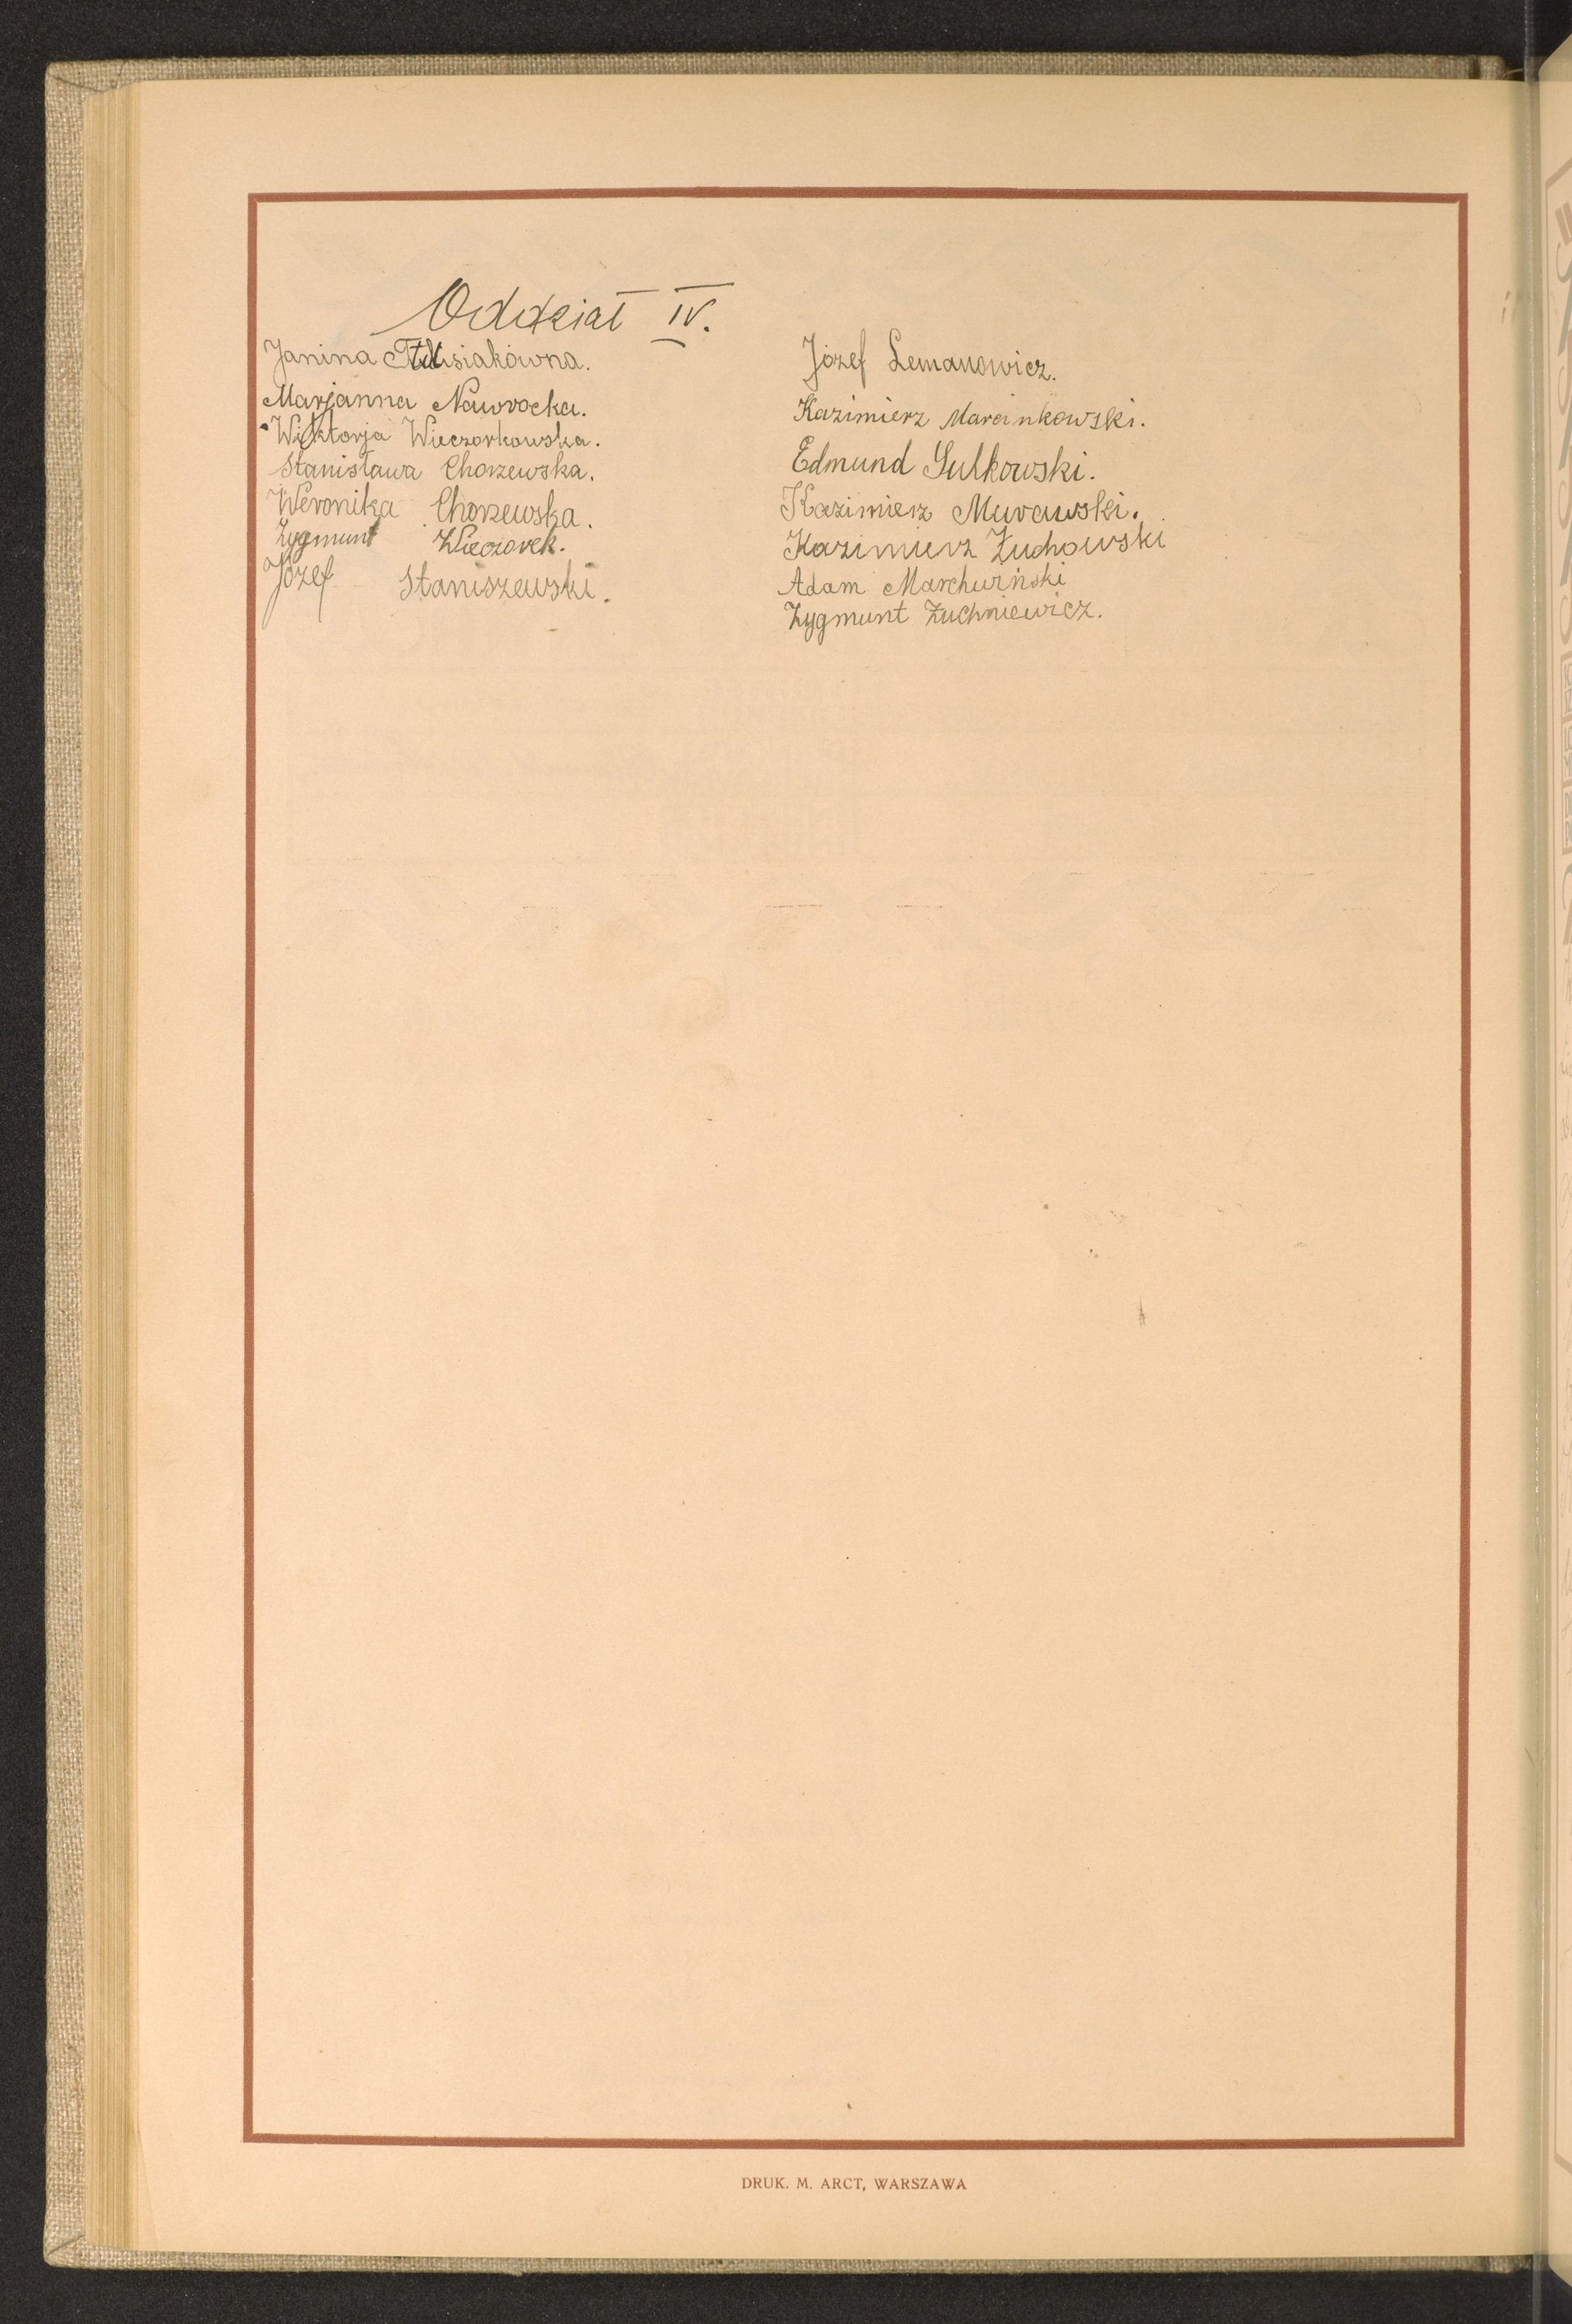 Oddział IV.
Janina
Marjanna Nawrocka.
Wiktorja Wieczorkowska.
Stanisława Chorzewska.
Weronika Chorzewska.
Zygmunt Wieczorek.
Józef Staniszewski.
Józef Lemanowicz.
Kazimierz Marcinkowski.
Edmund Sulkowski.
Kazimierz Murawski.
Kazimierz Żuchowski
Adam
Zygmunt Żuchniewicz.
DRUK. M. ARCT, WARSZAWA